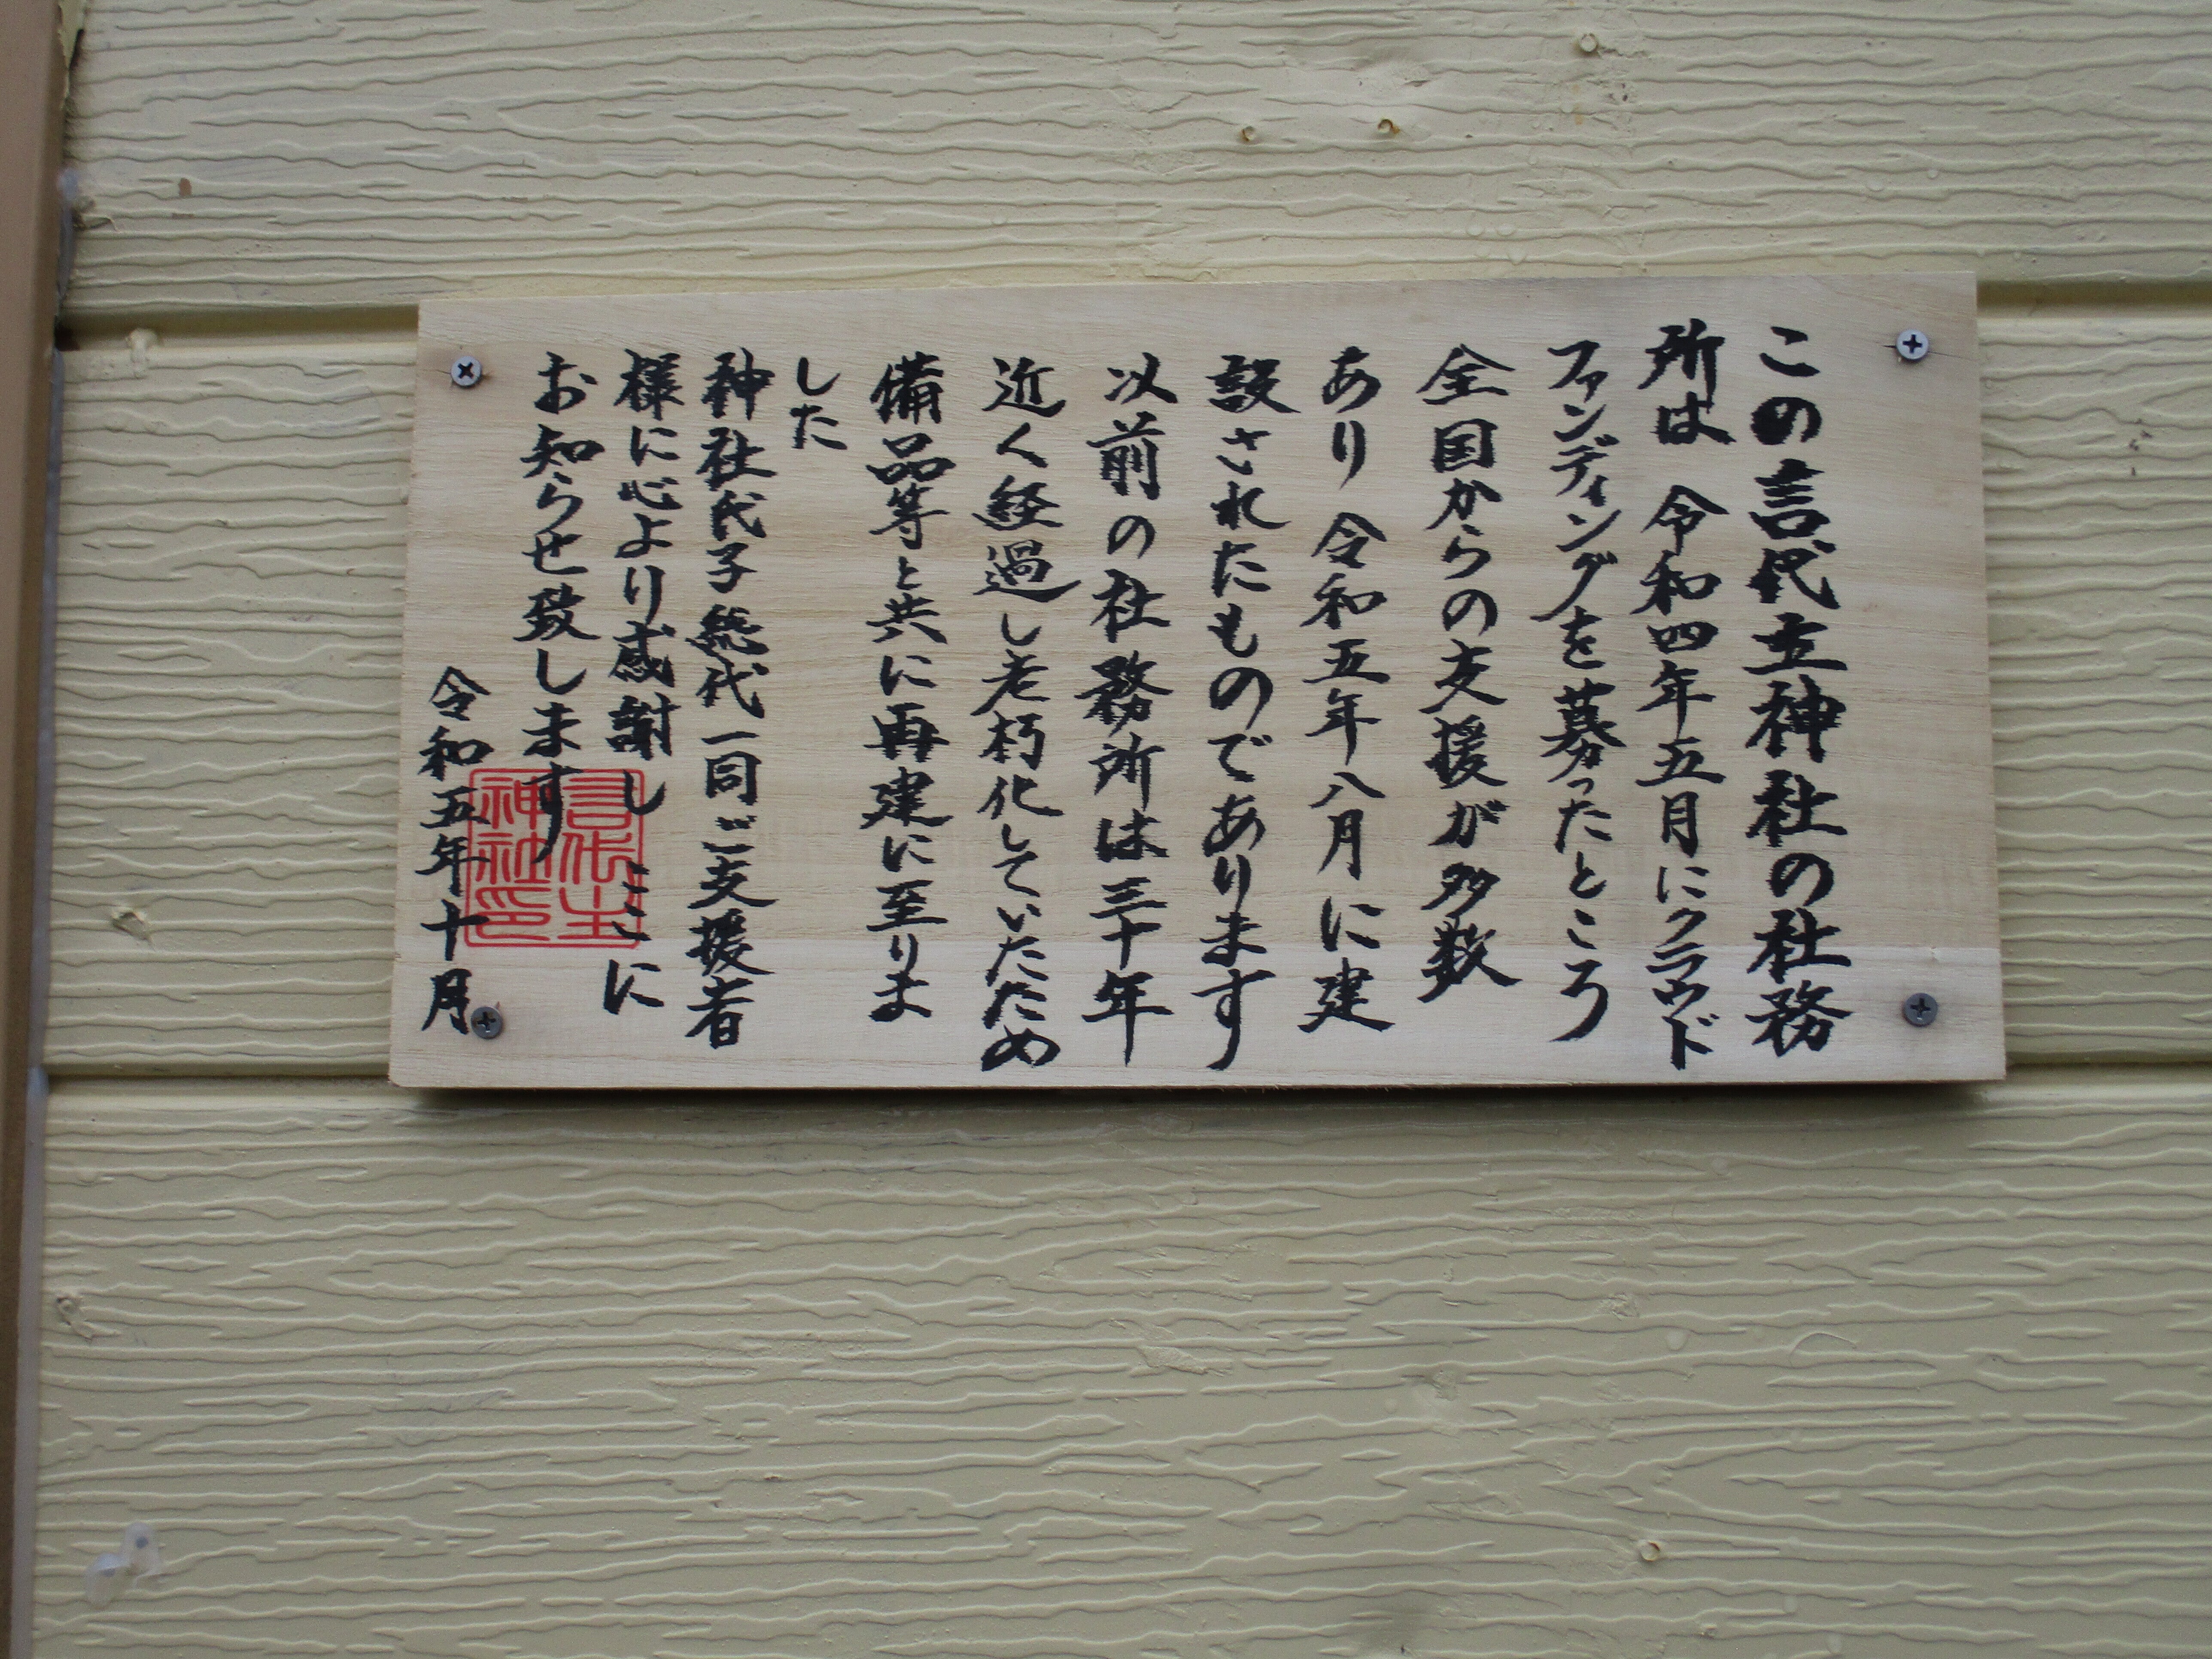 この言代主神社の社務
所は 令和四年五月にクラウド
ファンディングを募ったところ
全国からの支援が多数
あり 令和五年八月に建
設されたものであります
以前の社務所は三十年
近く経過し老朽化していたため
備品等と共に再建に至りま
した
神社氏子総代一同ご支援者
様に心より感謝し ここに
お知らせ致します
令和五年十月
言代主
神社印